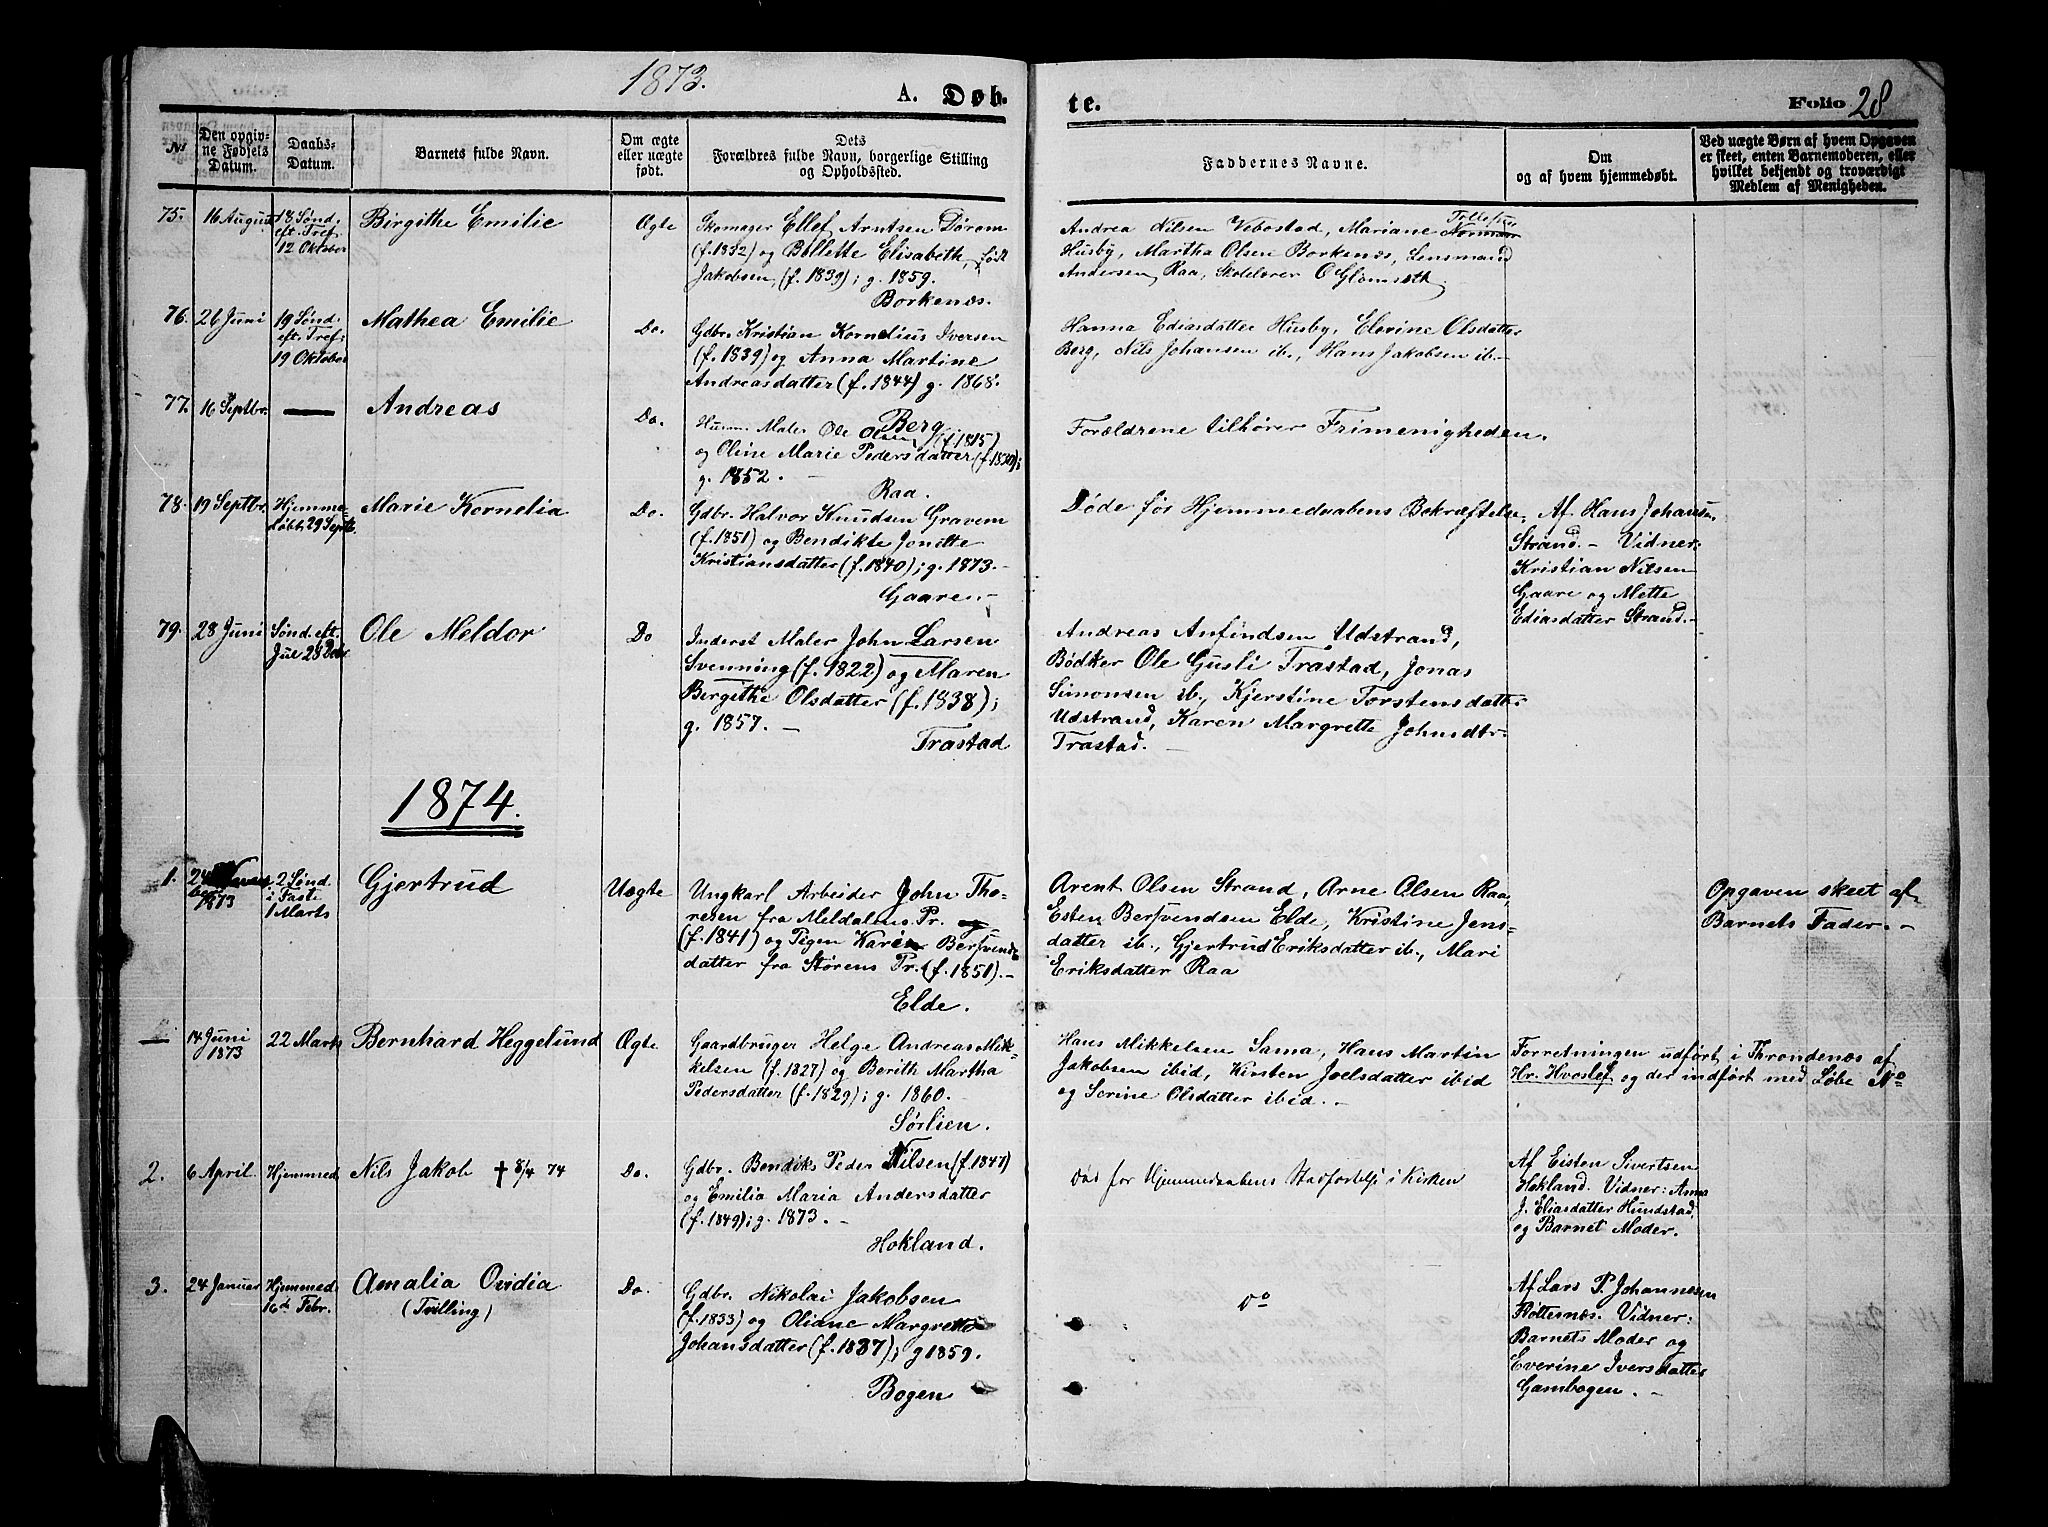 1873.
A. Døb-
te.
Folio 28
No
Den opgiv-
ne Fødsels
Datum.
Daabs-
Datum.
Barnets fulde Navn.
Om ægte
eller uægte
født.
Dets
Forældres fulde Navn, borgerlige Stilling
og Opholdssted.
Faddernes Navne.
Om
og af hvem hjemmedøbt.
Ved uægte Børn af hvem Opgaven
er skeet, enten Barnemoderen, eller
hvilket bekjendt og troværdigt
Medlem af Menigheden.
75.
16 August
18 Sønd.
eft. Tref.
12 Oktober
Birgithe Emilie
Ægte
Skomager Ellef Arntsen Dørom
(f. 1832) og Bollette Elisabeth, født
Jakobsen, (f. 1839); g. 1859.
Borkenæs.
Andrea Nilsen Vebostad, Mariane
Husby, Martha Olsen Borkenæs, Lensmand
Andersen Raa, Skolelærer O Glomseth
76.
26 Juni
19 Sønd.
eft. Tref.
19 Oktober
Mathea Emilie
Do.
Gdbr. Kristian Kornelius Iversen
(f. 1839) og Anna Martine
Andreasdatter (f. 1844) g. 1868.
Berg
Hanna Ediasdatter Husby, Elerine Olsdatter
Berg, Nils Johansen ib., Hans Jakobsen ib.-
77.
16 Septbr.
—
Andreas
Do.
Husm. Maler Ole Olsen (f. 1815)
og Oline Marie Pedersdatter (f. 1830);
g. 1852. -
Raa.
Forældrene tilhører Frimenigheden.
78.
19 Septbr.
Hjemme-
døbt 29 Septb.
Marie Kornelia
Do.
Gdbr. Halvor Knudsen Gravem
(f. 1851) og Bendikte Jonette
Kristiansdatter (f. 1840); g. 1873. -
Gaare. -
Døde før Hjemmedaabens Bekræftelse.
Af Hans Johansen
Strand. - Vidner:
Kristian Nilsen
Gaare og Mette
Ediasdatter Strand. -
79.
28 Juni
Sønd. eft.
Jul 28 Debr
Ole Meldor
Do
Inderst Maler John Larsen
Svenning (f. 1822) og Maren
Bergithe Olsdatter (f. 1838);
g. 1857. -
Trastad
Andreas Anfindsen Udstrand,
Bødker Ole Gusli Trastad, Jonas
Simonsen ib., Kjerstine Torstensdatter
Udstrand, Karen Margrette Johnsdtr
Trastad. -
1874.
1.
24
1873
2 Sønd.
i Faste
1 Marts
Gjertrud
Uægte
Ungkarl Arbeider John Tho-
resen fra Meldalens Pr.
(f. 1841) og Pigen Karen Bersvends
datter fra Størens Pr. (f. 1851). -
Elde.
Arent Olsen Strand, Arne Olsen Raa,
Esten Bersvendsen Elde, Kristine Jens-
datter ib., Gjertrud Eriksdatter ib., Mari
Eriksdatter Raa
Opgaven skeet af
Barnets Fader. -
—
14 Juni
1873
22 Marts
Bernhard Heggelund
Ægte
Gaardbruger Helge Andreas Mik-
kelsen (f. 1827) og Berith Martha
Pedersdatter (f. 1829); g. 1860. -
Sørlien.
Hans Mikkelsen Sama, Hans Martin
Jakobsen ibid, Kirsten Joelsdatter ibid
og Serine Olsdatter ibid. -
Forretningen udført i Throndenæs af
Hr. Hvoslef og der indført med Løbe No
2.
6 April.
Hjemmed.
Nils Jakob † 8/4 74
Do.
Gdbr. Bendiks Peder Nilsen (f. 1847)
og Emilia Maria Andersdatter
(f. 1849); g. 1873. -
Hokland.
Død før Hjemmedaabens Stadfæstelse i Kirken
Af Eisten Sivertsen
Hokland. Vidner: Anna
J. Eliasdatter Hundstad,
og Barnet Moder.
3.
24 Januar
Hjemmed.
16de Febr.
Amalia Ovidia
(Tvilling)
Do.
Gdbr. Nikolai Jakobsen
(f. 1833) og Oliane Margrette
Johansdatter (f. 1837); g 1859.
Bogen
Do
Af Lars P. Johannesen
Røttenæs. Vidner:
Barnets Moder og
Everine Iversdatter
Gambogen. -